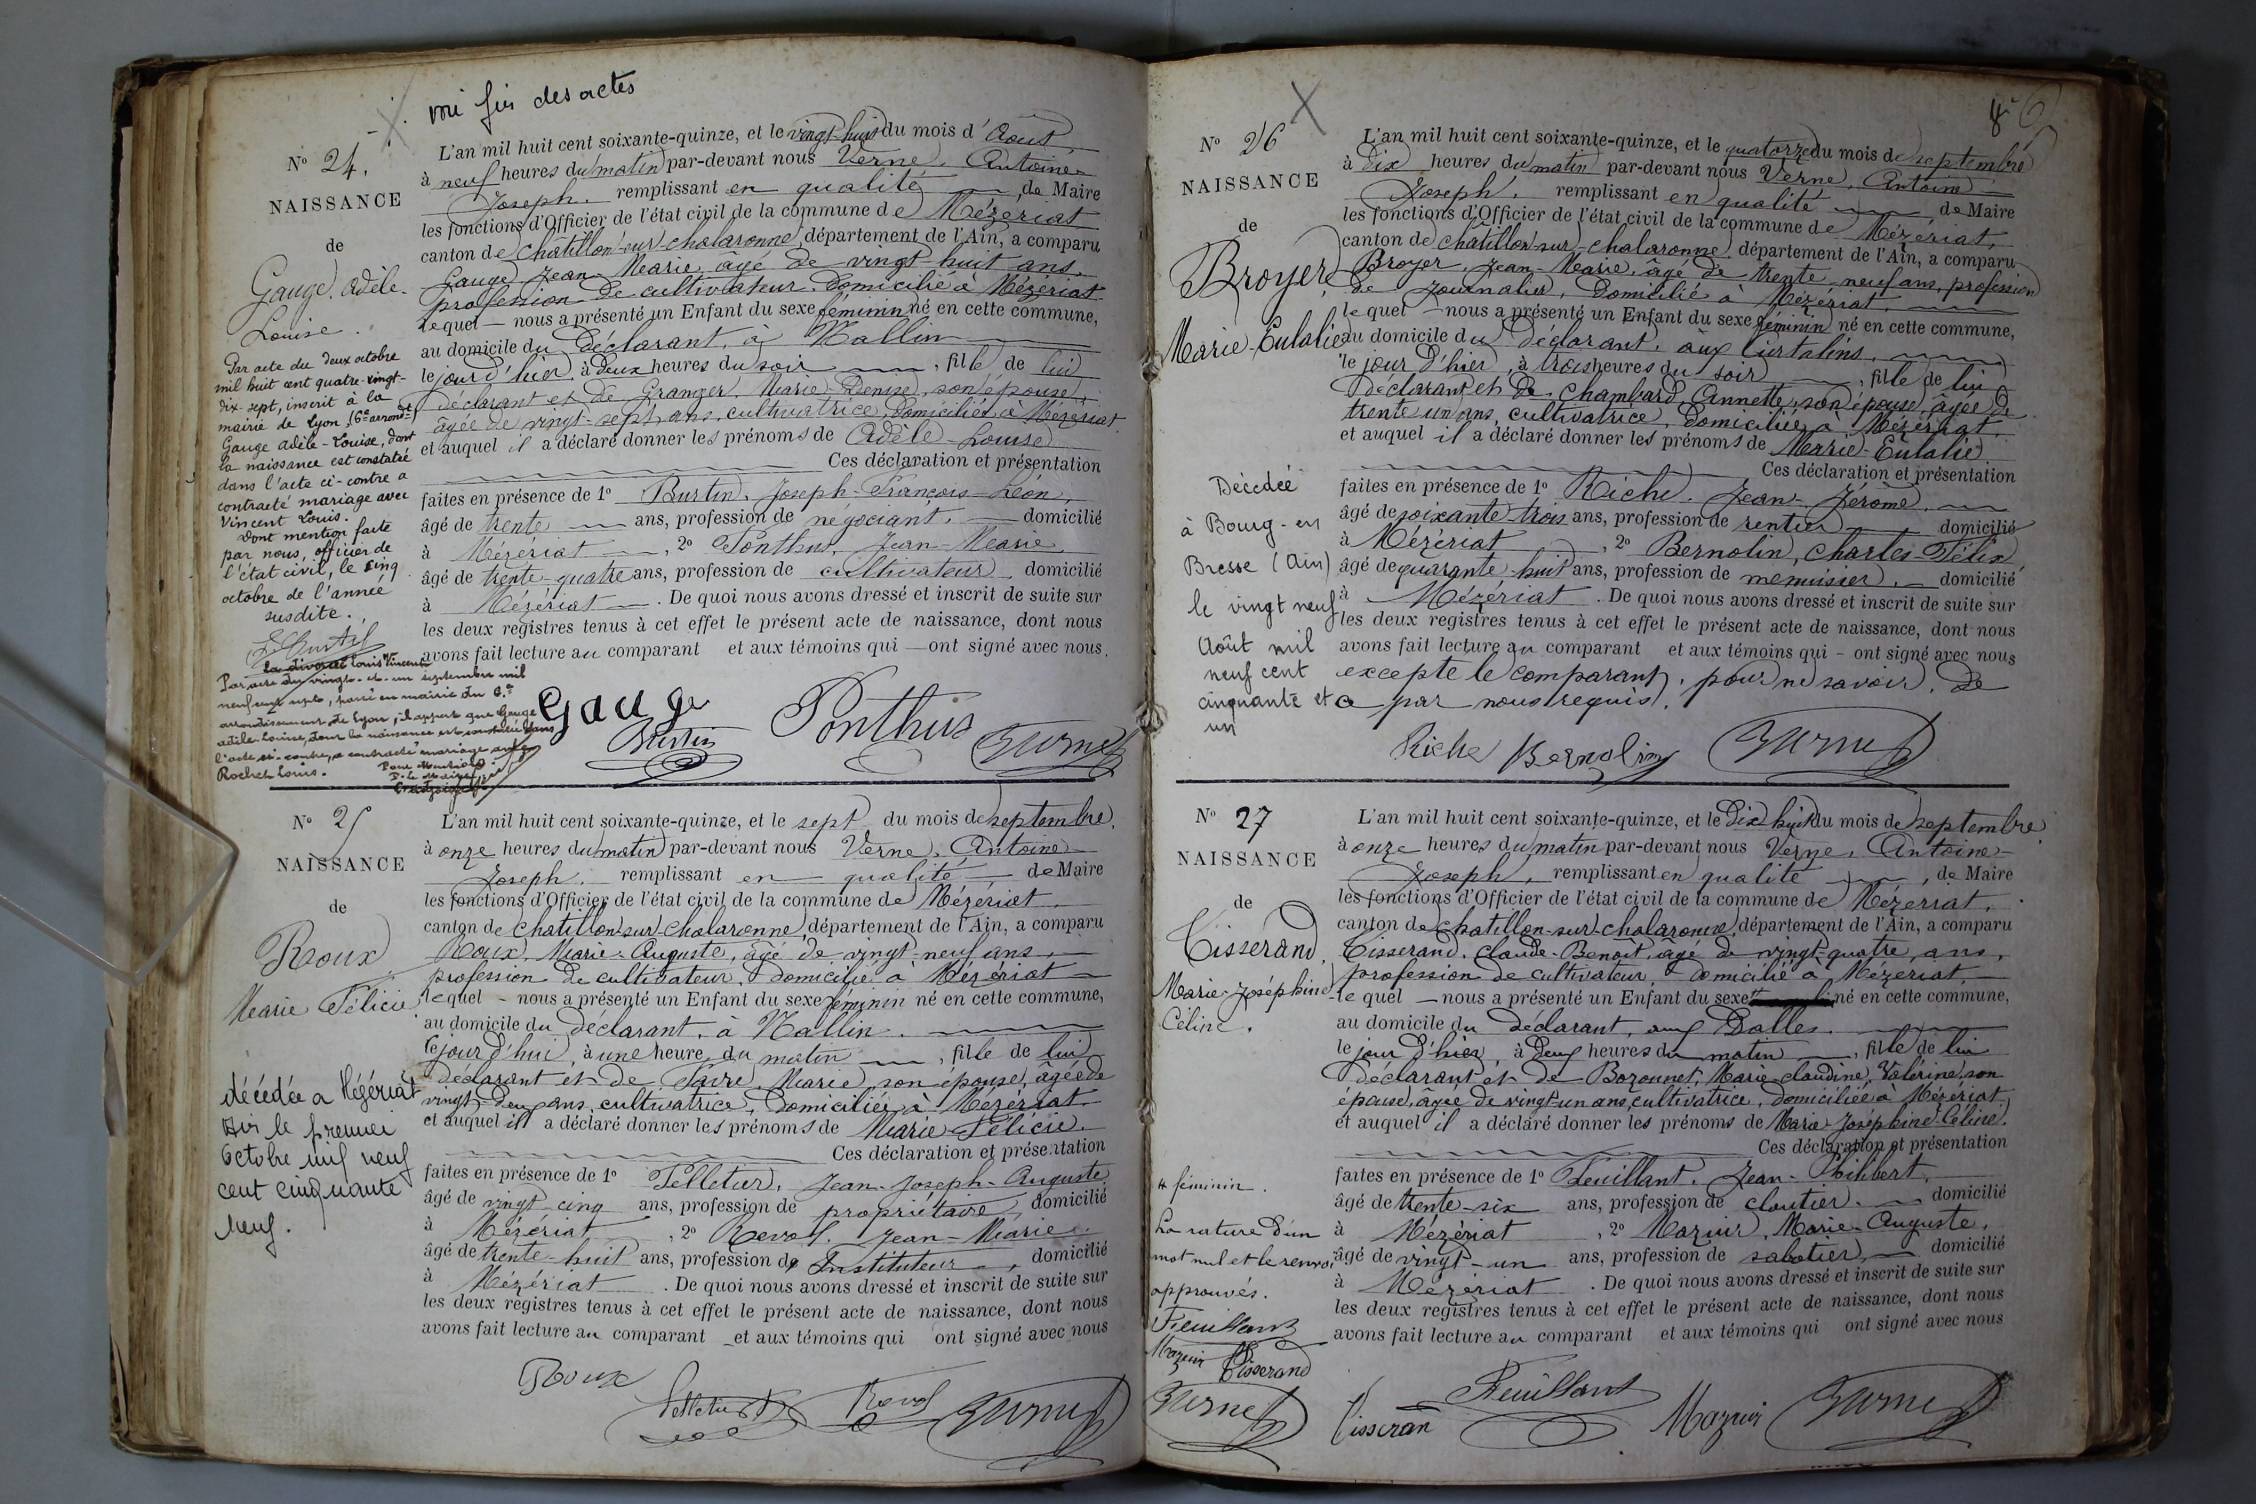 voir fin des actes
N° 24.
NAISSANCE
de
Gauge. Adèle-
Louise.
Par acte du deux octobre
mil huit cent quatre-vingt-
dix-sept, inscrit à la
mairie de Lyon (6e arrondt)
Gauge Adèle-Louise, dont
la naissance est constatée
dans l'acte ci-contre a
contracté mariage avec
Vincent Louis.
Dont mention faite
par nous, officier de
l'état civil, le cinq
octobre de l'année
susdite.
La divorcée Louis Vincent
Par acte du vingt-et-un septembre mil
neuf cent sept, passé en mairie du 6e
arrondissement de Lyon, il appert que Gauge
Adèle Louise, dont la naissance est constatée dans
l'acte ci-contre, a contracté mariage avec
Rochet Louis.
Pour Mention
P. le Maire
L'an mil huit cent soixante-quinze, et le vingt-huit du mois d'Août,
à neuf heures du matin par-devant nous Verne, Antoine-
Joseph. remplissant en qualité de Maire
les fonctions d'Officier de l'état civil de la commune de Mézériat
canton de Châtillon-sur-Chalaronne, département de l'Ain, a comparu
Gauge, Jean-Marie, âgé de vingt-huit ans,
profession de cultivateur, domicilié à Mézériat
lequel nous a présenté un Enfant du sexe féminin né en cette commune,
au domicile du déclarant, à Mallin
le jour d'hier, à deux heures du soir, fille de lui
déclarant et de Granger, Marie-Denise, son épouse,
âgée de vingt-sept ans, cultivatrice, domiciliée à Mézériat
et auquel il a déclaré donner les prénoms de Adèle-Louise
Ces déclaration et présentation
faites en présence de 1° Burtin, Joseph-François-Léon,
âgé de trente ans, profession de négociant, domicilié
à Mézériat, 2° Ponthus, Jean-Marie
âgé de trente-quatre ans, profession de cultivateur, domicilié
à Mézériat. De quoi nous avons dressé et inscrit de suite sur
les deux registres tenus à cet effet le présent acte de naissance, dont nous
avons fait lecture au comparant et aux témoins qui ont signé avec nous.
Gauge
Burtin Ponthus Verne
N° 25
NAISSANCE
de
Roux
Marie Félicie
décédée a Mézériat
Ain le premier
Octobre mil neuf
cent cinquante
neuf.
L'an mil huit cent soixante-quinze, et le sept du mois de septembre,
à onze heures du matin par-devant nous Verne, Antoine-
Joseph. remplissant en qualité de Maire
les fonctions d'Officier de l'état civil de la commune de Mézériat
canton de Chatillon-sur-Chalaronne, département de l'Ain, a comparu
Roux, Marie-Auguste, âgé de vingt-neuf ans,
profession de cultivateur, domicilié à Mézériat
lequel - nous a présenté un Enfant du sexe féminin né en cette commune,
au domicile du déclarant, à Mallin.
le jour d'hui, à une heure du matin, fille de lui
déclarant et de Favre, Marie, son épouse, âgée de
vingt-deux ans, cultivatrice, domiciliée à Mézériat
et auquel il a déclaré donner les prénoms de Marie-Félicie.
Ces déclaration et présentation
faites en présence de 1° Pelletier, Jean-Joseph-Auguste
âgé de vingt cinq ans, profession de propriétaire, domicilié
à Mézériat, 2° Revol, Jean-Marie.
âgé de trente-huit ans, profession de Instituteur, domicilié
à Mézériat. De quoi nous avons dressé et inscrit de suite sur
les deux registres tenus à cet effet le présent acte de naissance, dont nous
avons fait lecture au comparant et aux témoins qui ont signé avec nous
Roux
Pelletier Revol Verne
N° 26
NAISSANCE
de
Broyer,
Marie-Eulalie
Décédée
à Bourg-en
Bresse (Ain)
le vingt neuf
Août mil
neuf cent
cinquante et
un
L'an mil huit cent soixante-quinze, et le quatorze du mois de septembre
à dix heures du matin par-devant nous Verne, Antoine-
Joseph, remplissant en qualité de Maire
les fonctions d'Officier de l'état civil de la commune de Mézériat,
canton de Châtillon-sur-Chalaronne, département de l'Ain, a comparu
Broyer, Jean-Marie, âgé de trente-neuf ans, profession
de journalier, domicilié à Mézériat
lequel nous a présenté un Enfant du sexe féminin né en cette commune,
au domicile du déclarant, aux
le jour d'hier, à trois heures du soir, fille de lui
déclarant et de Chambard, Annette, son épouse, âgée de
trente un ans, cultivatrice, domiciliée à Mézériat,
et auquel il a déclaré donner les prénoms de Marie-Eulalie
Ces déclaration et présentation
faites en présence de 1° Riche, Jean-Jérôme,
âgé de soixante-trois ans, profession de rentier domicilié
à Mézériat, 2° Bernolin, Charles Félix
âgé de quarante-huit ans, profession de menuisier, domicilié
à Mézériat. De quoi nous avons dressé et inscrit de suite sur
les deux registres tenus à cet effet le présent acte de naissance, dont nous
avons fait lecture au comparant et aux témoins qui - ont signé avec nous
excepté le comparant, pour ne savoir, de
ce par nous requis.
Riche Bernolin Verne
N° 27
NAISSANCE
de
Tisserand,
Marie-Joséphine
Céline.
# féminin.
La rature d'un
mot nul et le renvoi
approuvés.
Feuillant
Mazuir Tisserand
Verne
L'an mil huit cent soixante-quinze, et le dix huit du mois de septembre
à onze heures du matin par-devant nous Verne, Antoine-
Joseph, remplissant en qualité, de Maire
les fonctions d'Officier de l'état civil de la commune de Mézériat.
canton de Chatillon-sur-Chalaronne, département de l'Ain, a comparu
Tisserand, Claude-Benoît, âgé de vingt-quatre ans,
profession de cultivateur, domicilié à Mézériat
lequel nous a présenté un Enfant du sexe # né en cette commune,
au domicile du déclarant, aux Dalles.
le jour d'hier, à deux heures du matin, fille de lui
déclarant et de Bozonnet, Marie-Claudine, Valérine, son
épouse, âgée de vingt-un ans, cultivatrice, domiciliée à Mézériat,
et auquel il a déclaré donner les prénoms de Marie-Joséphine-Céline.
Ces déclaration et présentation
faites en présence de 1° Feuillant, Jean-Philibert,
âgé de trente-six ans, profession de cloutier. domicilié
à Mézériat, 2° Mazuir, Marie-Auguste,
âgé de vingt-un ans, profession de sabotier, domicilié
à Mézériat. De quoi nous avons dressé et inscrit de suite sur
les deux registres tenus à cet effet le présent acte de naissance, dont nous
avons fait lecture au comparant et aux témoins qui ont signé avec nous
Tisseran Feuillant Mazuir Verne